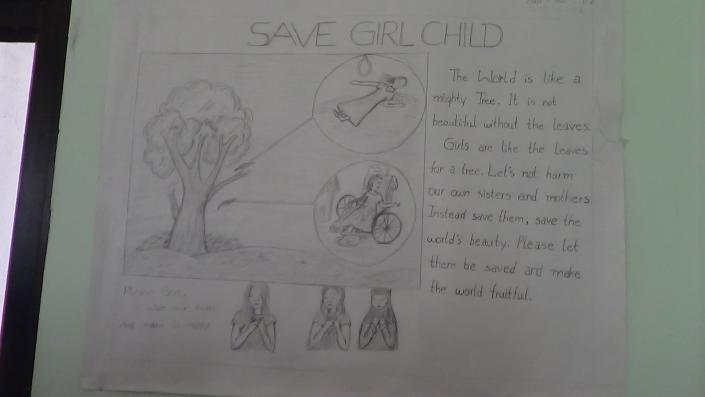 SAVE GIRL CHILD
The World is like a
mighty Tree. It is not
beautiful without the leaves.
Girls are like the leaves
for a tree. Let's not harm
our own sisters and mothers
Instead save them, save the
world's beauty. Please let
them be saved and make
the world fruitful.
Please